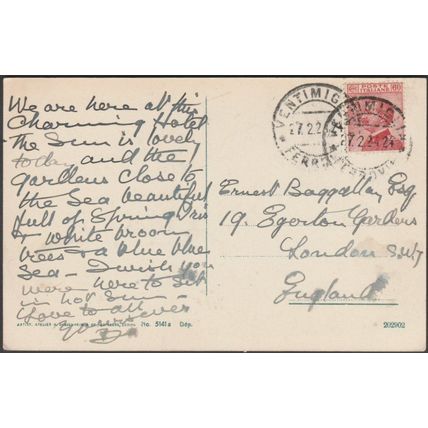 We are here at this
Charming Hotel
The Sun is lovely
today and the
gardens close to
the Sea beautiful
full of Spring Iris
& white broom
trees & a blue blue
Sea - I wish you
were here to sit
in hot Sun -
Love to all
Yours ever
VENTIMIGLIA
27.2.24
FERROVIA
POSTE ITALIANE
60
Ernest Baggallay Esq
19. Egerton Gardens
London S.W.7
England
No. 5141a Dép.
202902